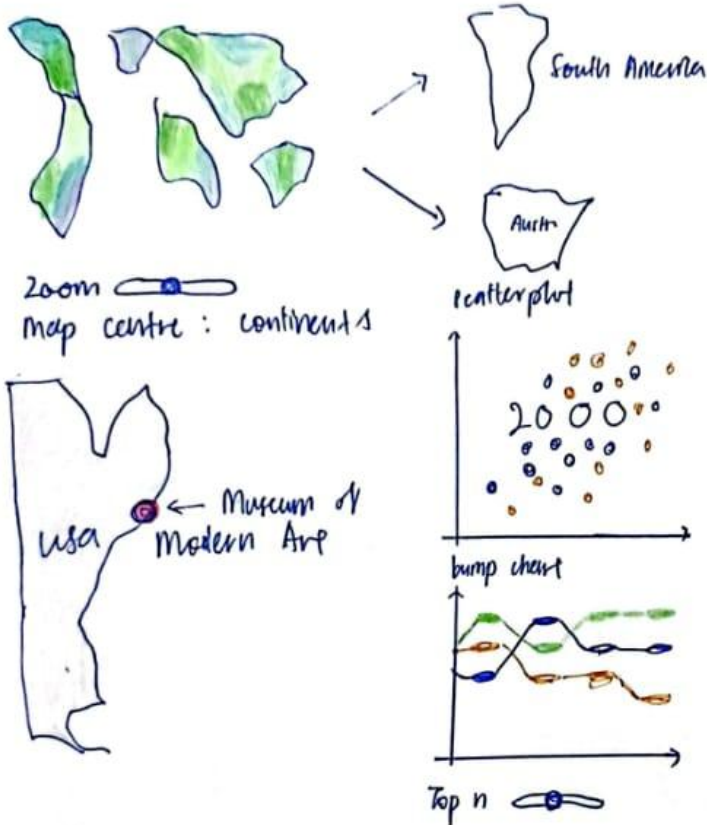 South America
Austr
Zoom
map centre : continents
scatterplot
2000
USA
← Museum of
Modern Art
bump chart
Top n